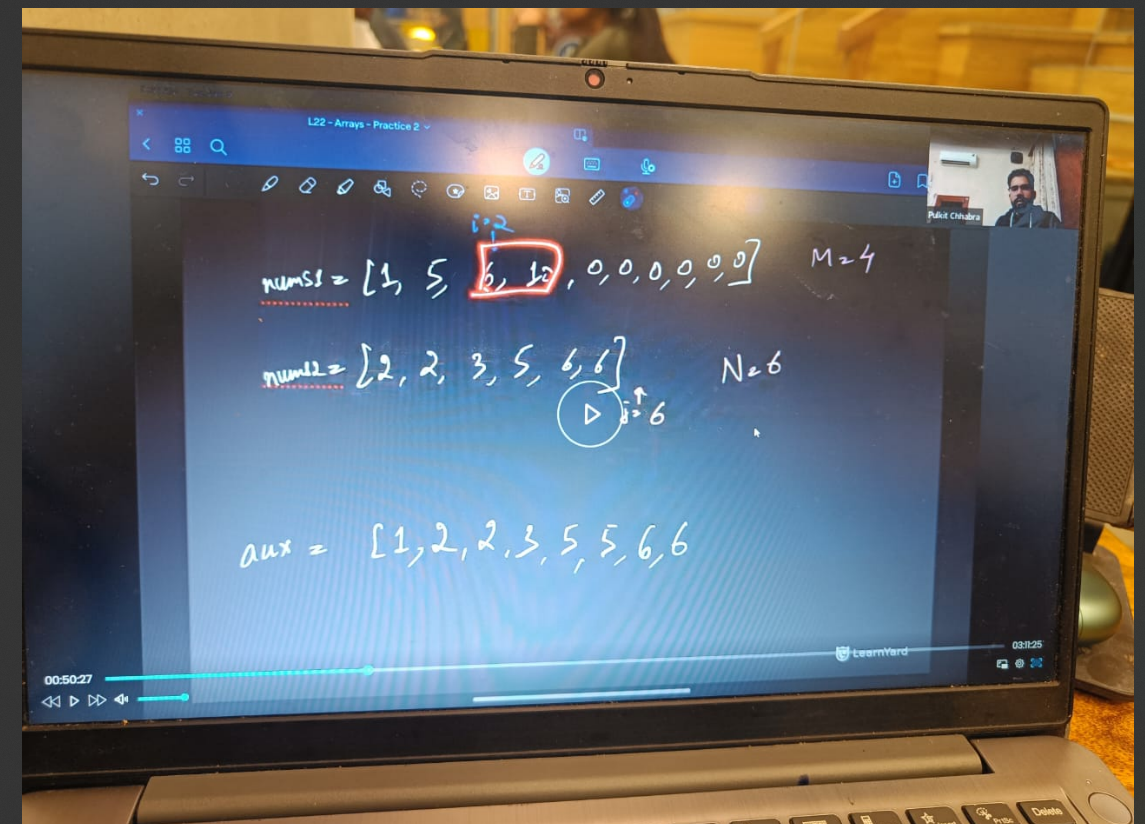 L22 - Arrays - Practice 2
Pulkit Chhabra
i=2
nums1 = [1, 5, 6, 10, 0, 0, 0, 0, 0, 0] M=4
nums2 = [2, 2, 3, 5, 6, 6] N=6
j=6
aux = [1, 2, 2, 3, 5, 5, 6, 6
LearnYard
00:50:27
03:11:25
PrtSc
Delete